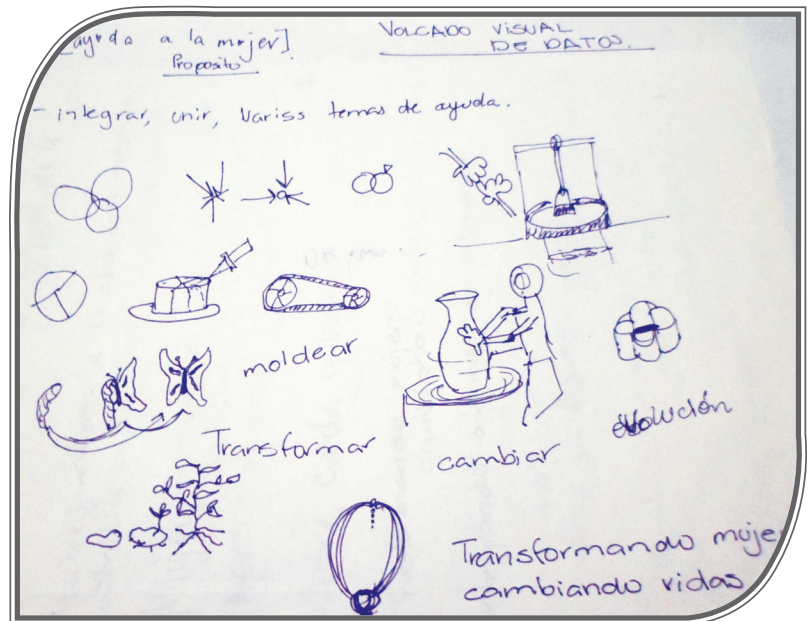 [ayuda a la mujer]
VOLCADO VISUAL
DE DATOS.
Proposito
- integrar, unir, variss temas de ayuda.
moldear
Transformar
cambiar
evolución
Transformando muje
cambiando vidas